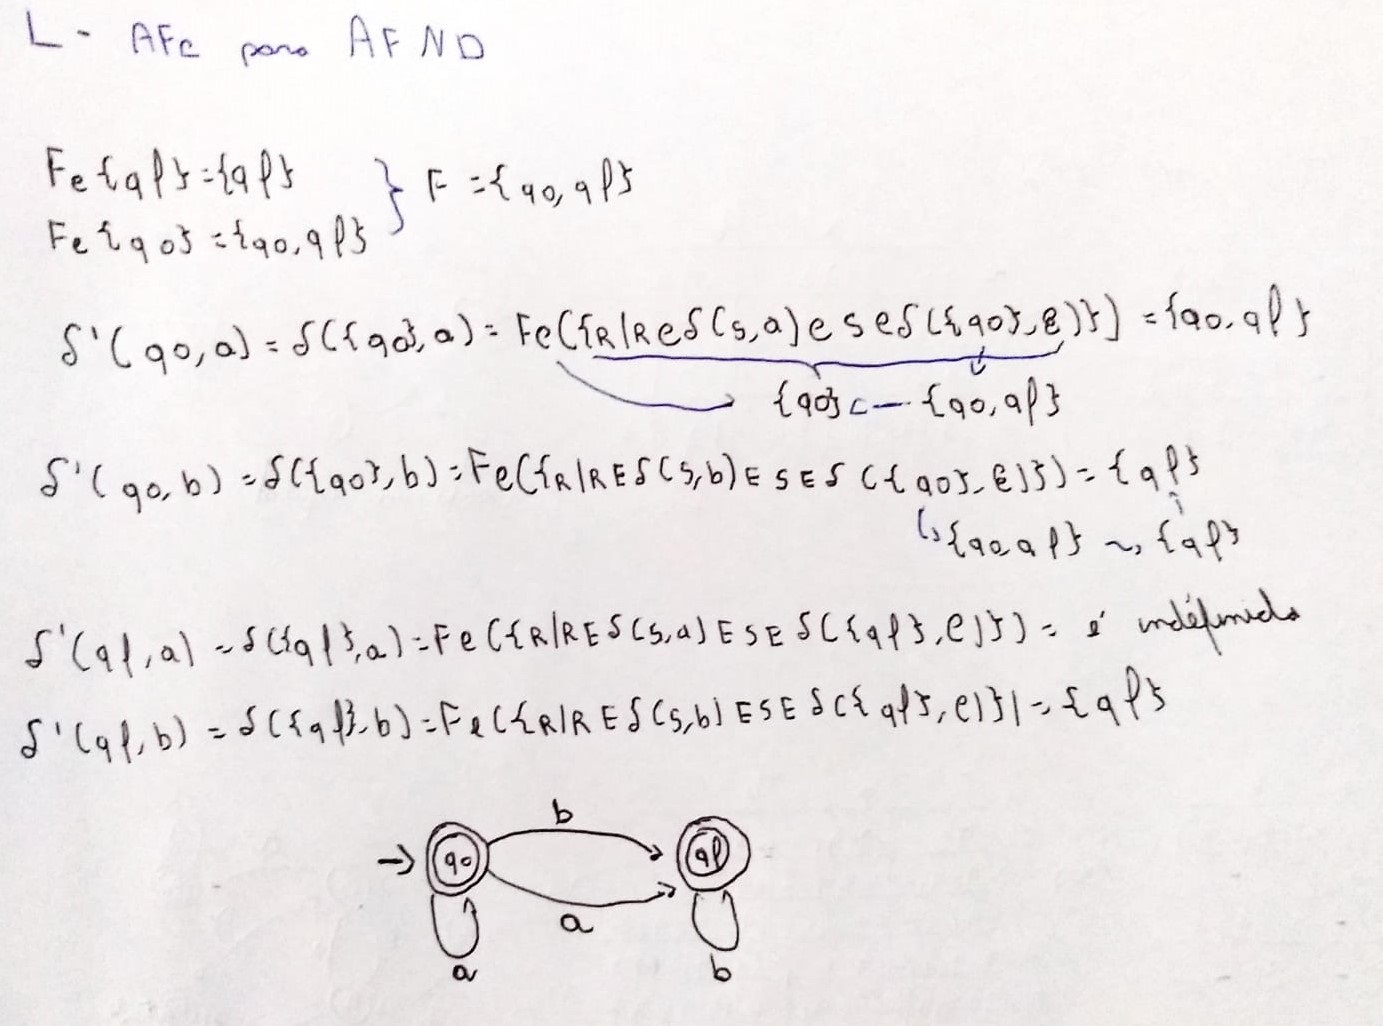 L - AFe para AFND
Fe{qf}={qf}
Fe{q0}={q0,qf}
} F={q0,qf}
δ'(q0,a)=δ({q0},a)=Fe({R/R∈δ(s,a) e s∈δ({q0},e)})={q0,qf}
{q0} ← {q0,qf}
δ'(q0,b)=δ({q0},b)=Fe({R/R∈δ(s,b) E S∈δ({q0},e)})={qf}
↳{q0,qf} ~> {qf}
δ'(qf,a)=δ({qf},a)=Fe({R/R∈δ(s,a) E S∈δ({qf},e)})= é indefinida
δ'(qf,b)=δ({qf},b)=Fe({R/R∈δ(s,b) E S∈δ({qf},e)})={qf}
b
→ q0 qf
a
a b